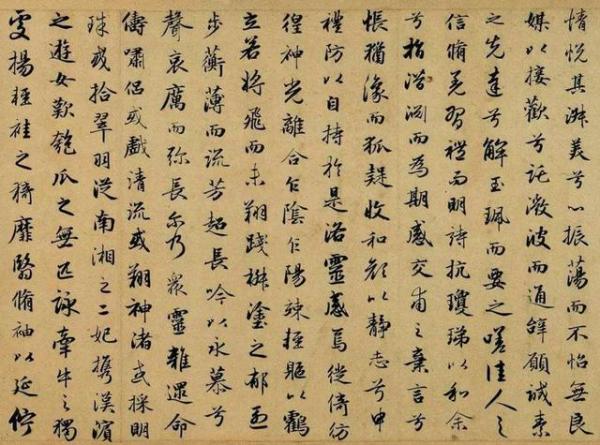 情悦其淑美兮心振蕩而不怡無良
媒以接歡兮託微波而通辭願誠素
之先達兮解玉珮而要之嗟佳人之
信脩羌習禮而明詩抗瓊珶以和余
兮指潛淵而為期感交甫之棄言兮
悵猶豫而狐疑收和顏以靜志兮申
禮防以自持於是洛靈感焉徙倚彷
徨神光離合乍陰乍陽竦輕軀以鶴
立若將飛而未翔踐椒塗之郁烈
步蘅薄而流芳超長吟以永慕兮
聲哀厲而弥長尔乃衆靈雜遝命
儔嘯侶或戲清流或翔神渚或採明
珠或拾翠羽從南湘之二妃攜漢濱
之遊女歎匏瓜之無匹詠牽牛之獨
處揚輕袿之猗靡翳脩袖以延佇